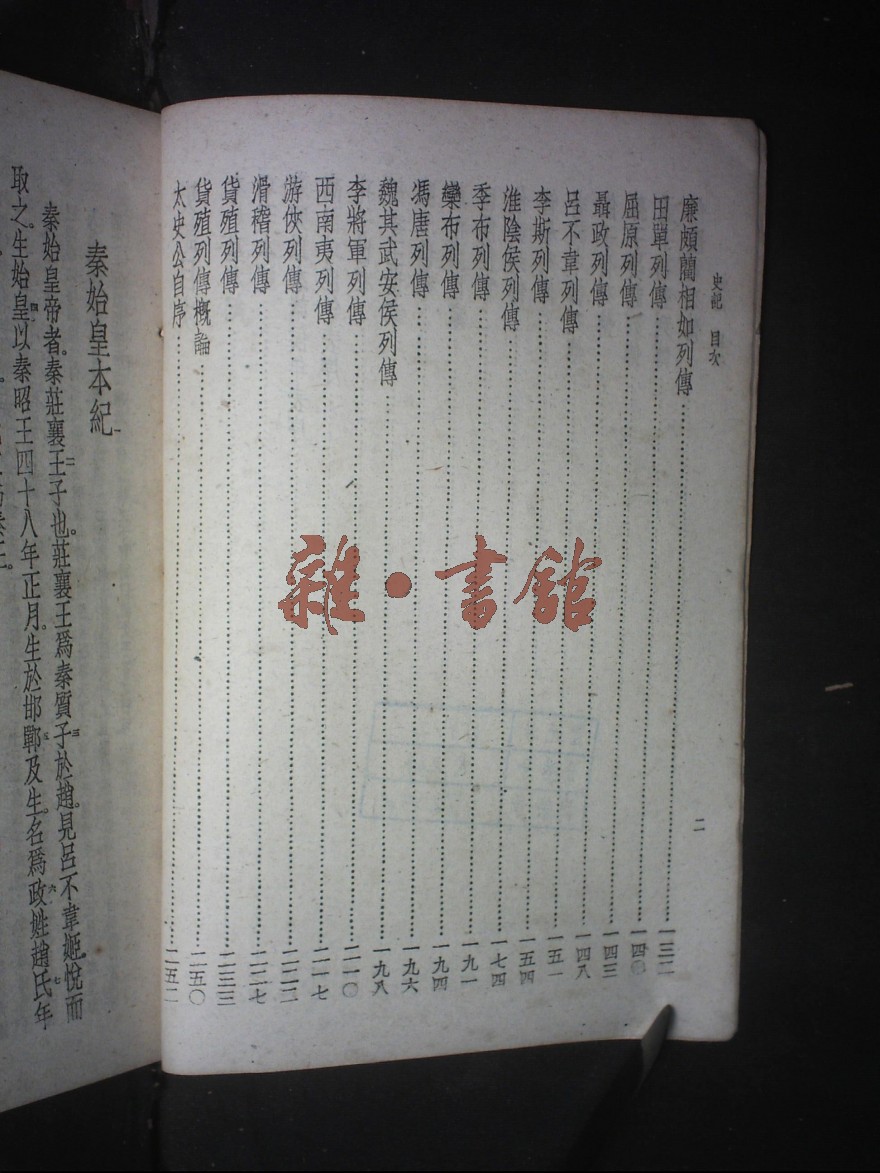 史記 目次
廉頗藺相如列傳……一三二
田單列傳……一四〇
屈原列傳……一四三
聶政列傳……一四八
呂不韋列傳……一五一
李斯列傳……一五四
淮陰侯列傳……一七四
季布列傳……一九一
欒布列傳……一九四
馮唐列傳……一九六
魏其武安侯列傳……一九八
李將軍列傳……二一〇
西南夷列傳……二一七
游俠列傳……二二二
滑稽列傳……二二七
貨殖列傳……二三三
貨殖列傳概論……二五〇
太史公自序……二五二
二
雜·書館
秦始皇本紀一
秦始皇帝者。秦莊襄王二子也。莊襄王爲秦質子三於趙。見呂不韋姬。悅而
取之。生始皇四。以秦昭王四十八年正月。生於邯鄲五。及生。名爲政六。姓趙氏七。年